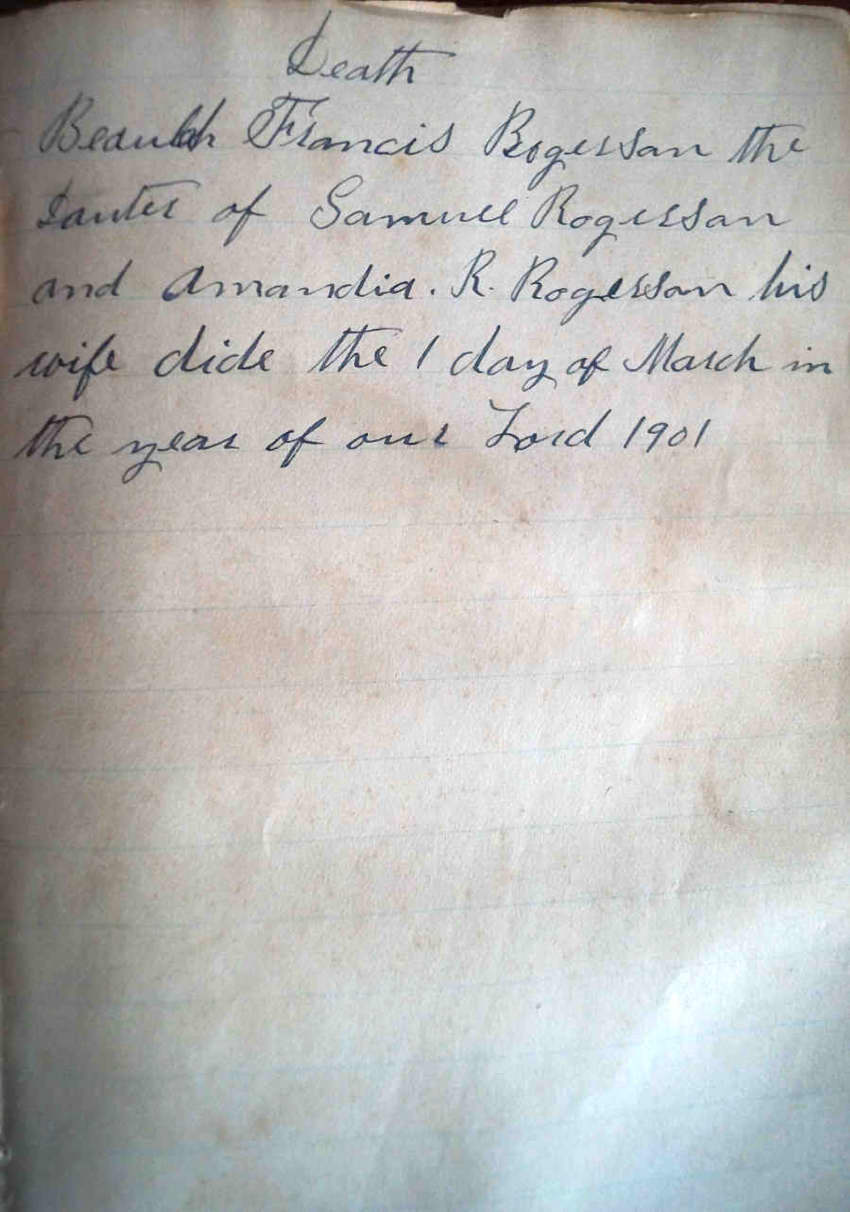 Death
Beaulah Francis Rogersan the
dauter of Samuel Rogersan
and Amandia. R. Rogersan his
wife dide the 1 day of March in
the year of our Lord 1901